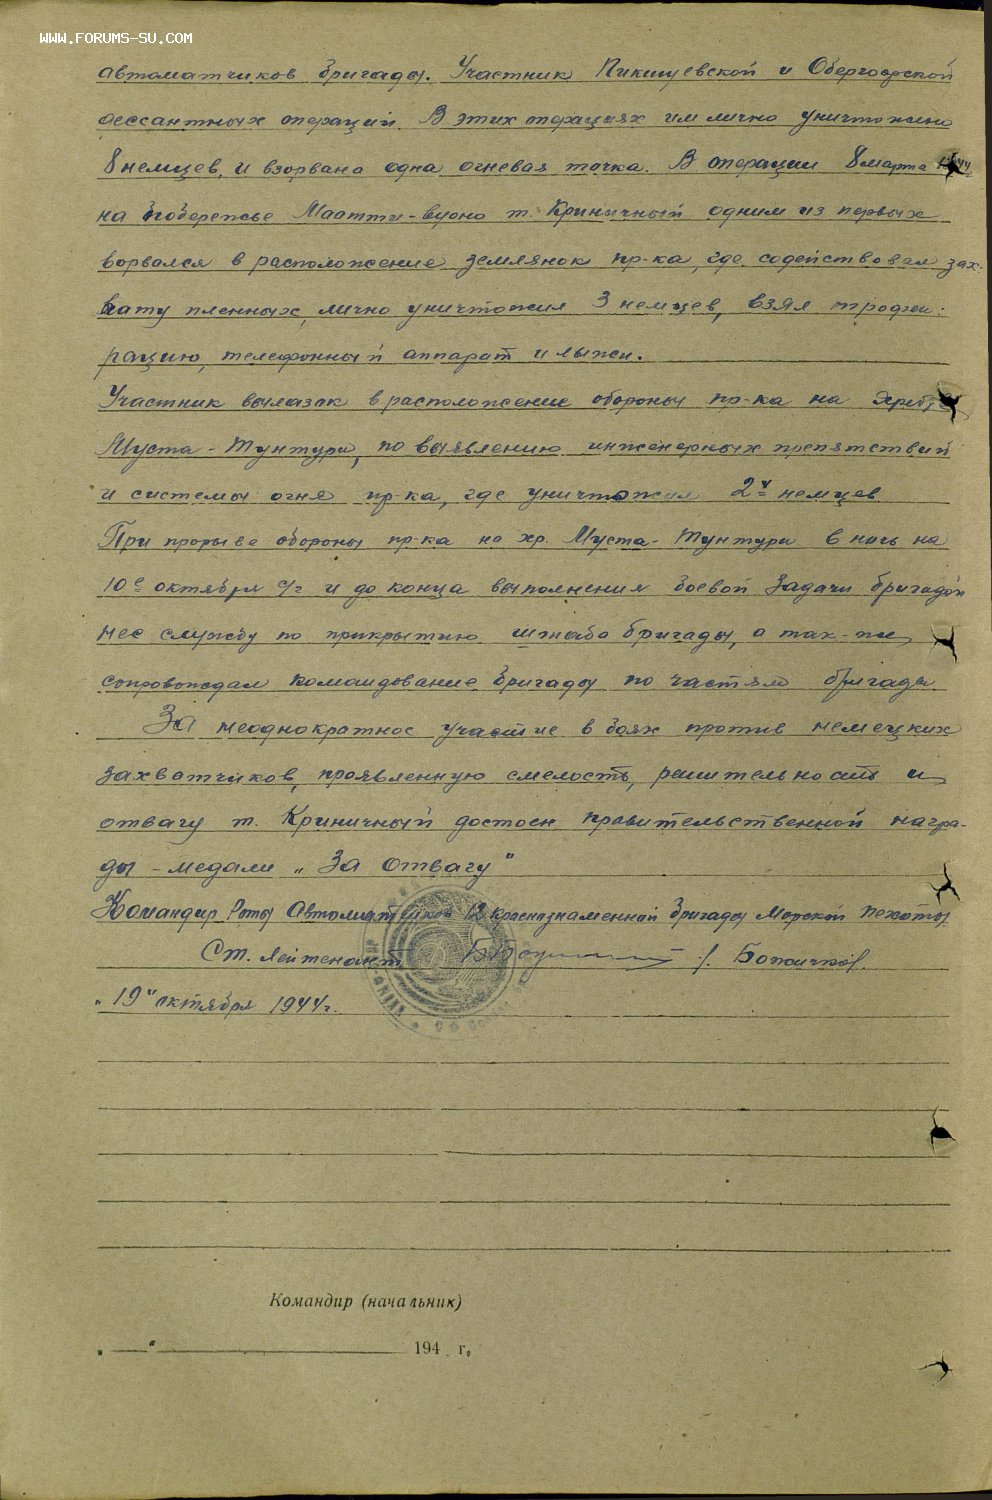 WWW.FORUMS-SU.COM
автоматчиков бригады. Участник Пикшуевской и
дессантных операций. В этих операциях им лично уничтожено
8 немцев, и взорвана одна огневая точка. В операции 8 марта
на побережье Маатти-вуоно т. Криничный одним из первых
ворвался в расположение землянок пр-ка, где содействовал зах-
вату пленных, лично уничтожил 3 немцев, взял трофеи:
рацию, телефонный аппарат и лыжи.
Участник вылазак в расположение обороны пр-ка на хребте
Муста-Тунтури, по выявлению инженерных препятствий
и системы огня пр-ка, где уничтожил 2х немцев
При прорыве обороны пр-ка на хр. Муста-Тунтури в ночь на
10е октября с/г и до конца выполнения боевой задачи бригадой
нес службу по прикрытию штаба бригады, а так-же
сопровождал командование бригады по частям бригады.
За неоднократное участие в боях против немецких
захватчиков, проявленную смелость, решительность и
отвагу т. Криничный достоен правительственной награ-
ды - медали „За отвагу"
Командир Роты Автоматчиков 12 Краснознаменной бригады Морской пехоты
Ст. лейтенант
„19" октября 1944г.
Командир (начальник)
„ — " 194 г.